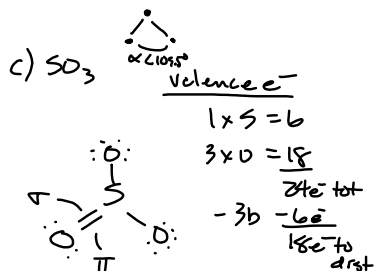 α<109.5°
c) SO₃
valence e⁻
1 x S = 6
3 x O = 18
24e⁻ tot
- 3b - 6e⁻
18e⁻ to
dist
O
σ S
O O
π